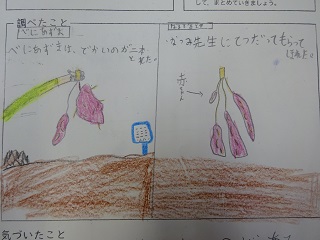 して、まとめていきましょう。
調べたこと
べにあずま
べにあずまは、でかいのが二本
とれた。
なつみ先生にてつだってもらって
ほれた。
赤ちゃん
気づいたこと